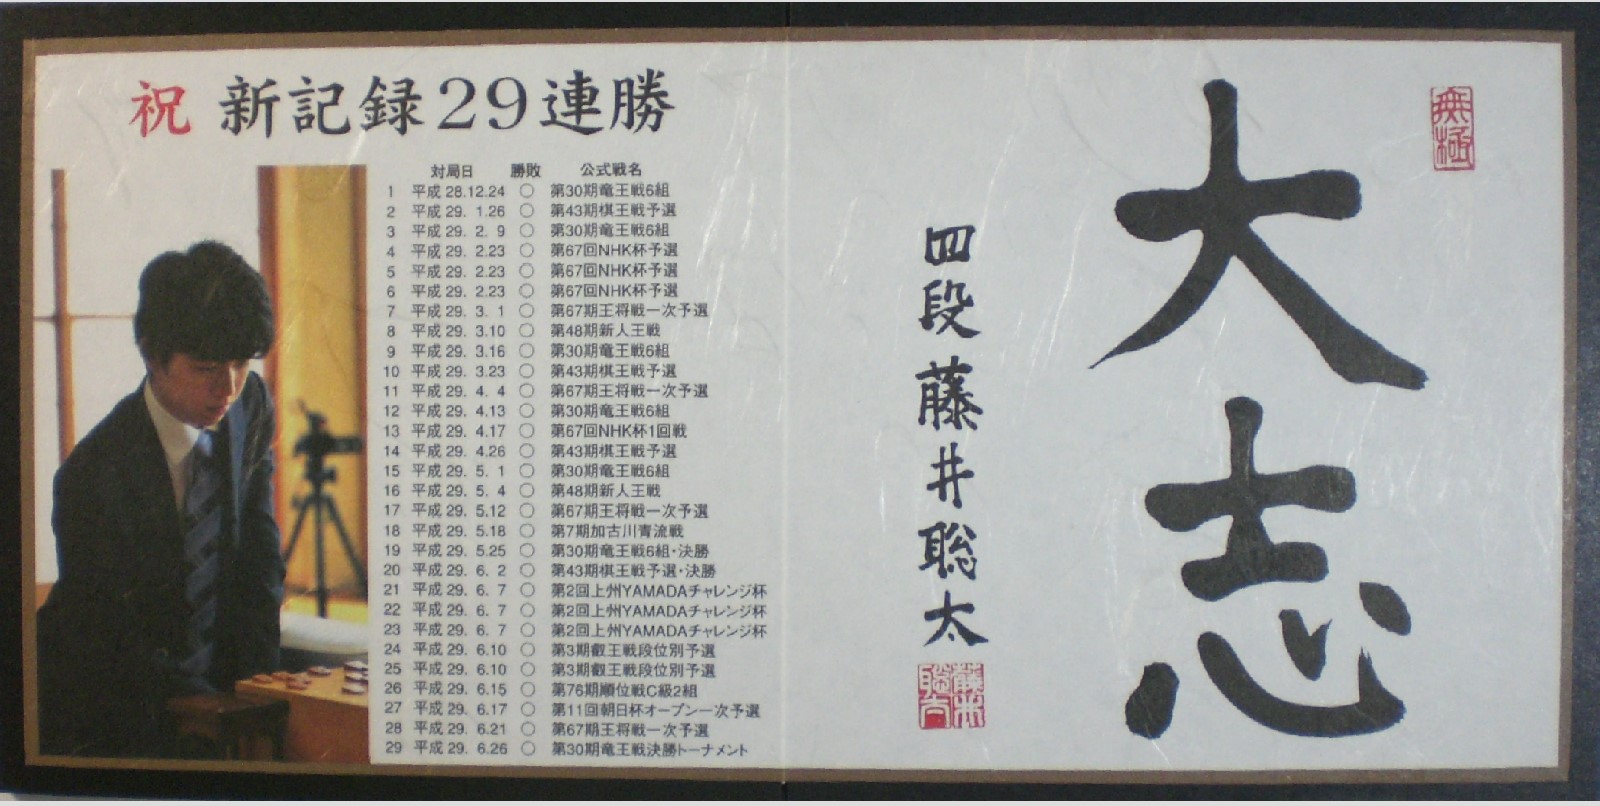 祝 新記録29連勝
対局日 勝敗 公式戦名
1 平成 28.12.24 ○ 第30期竜王戦6組
2 平成 29. 1.26 ○ 第43期棋王戦予選
3 平成 29. 2. 9 ○ 第30期竜王戦6組
4 平成 29. 2.23 ○ 第67回NHK杯予選
5 平成 29. 2.23 ○ 第67回NHK杯予選
6 平成 29. 2.23 ○ 第67回NHK杯予選
7 平成 29. 3. 1 ○ 第67期王将戦一次予選
8 平成 29. 3.10 ○ 第48期新人王戦
9 平成 29. 3.16 ○ 第30期竜王戦6組
10 平成 29. 3.23 ○ 第43期棋王戦予選
11 平成 29. 4. 4 ○ 第67期王将戦一次予選
12 平成 29. 4.13 ○ 第30期竜王戦6組
13 平成 29. 4.17 ○ 第67回NHK杯1回戦
14 平成 29. 4.26 ○ 第43期棋王戦予選
15 平成 29. 5. 1 ○ 第30期竜王戦6組
16 平成 29. 5. 4 ○ 第48期新人王戦
17 平成 29. 5.12 ○ 第67期王将戦一次予選
18 平成 29. 5.18 ○ 第7期加古川青流戦
19 平成 29. 5.25 ○ 第30期竜王戦6組・決勝
20 平成 29. 6. 2 ○ 第43期棋王戦予選・決勝
21 平成 29. 6. 7 ○ 第2回上州YAMADAチャレンジ杯
22 平成 29. 6. 7 ○ 第2回上州YAMADAチャレンジ杯
23 平成 29. 6. 7 ○ 第2回上州YAMADAチャレンジ杯
24 平成 29. 6.10 ○ 第3期叡王戦段位別予選
25 平成 29. 6.10 ○ 第3期叡王戦段位別予選
26 平成 29. 6.15 ○ 第76期順位戦C級2組
27 平成 29. 6.17 ○ 第11回朝日杯オープン一次予選
28 平成 29. 6.21 ○ 第67期王将戦一次予選
29 平成 29. 6.26 ○ 第30期竜王戦決勝トーナメント
無極
大志
四段 藤井聡太
藤井聡太